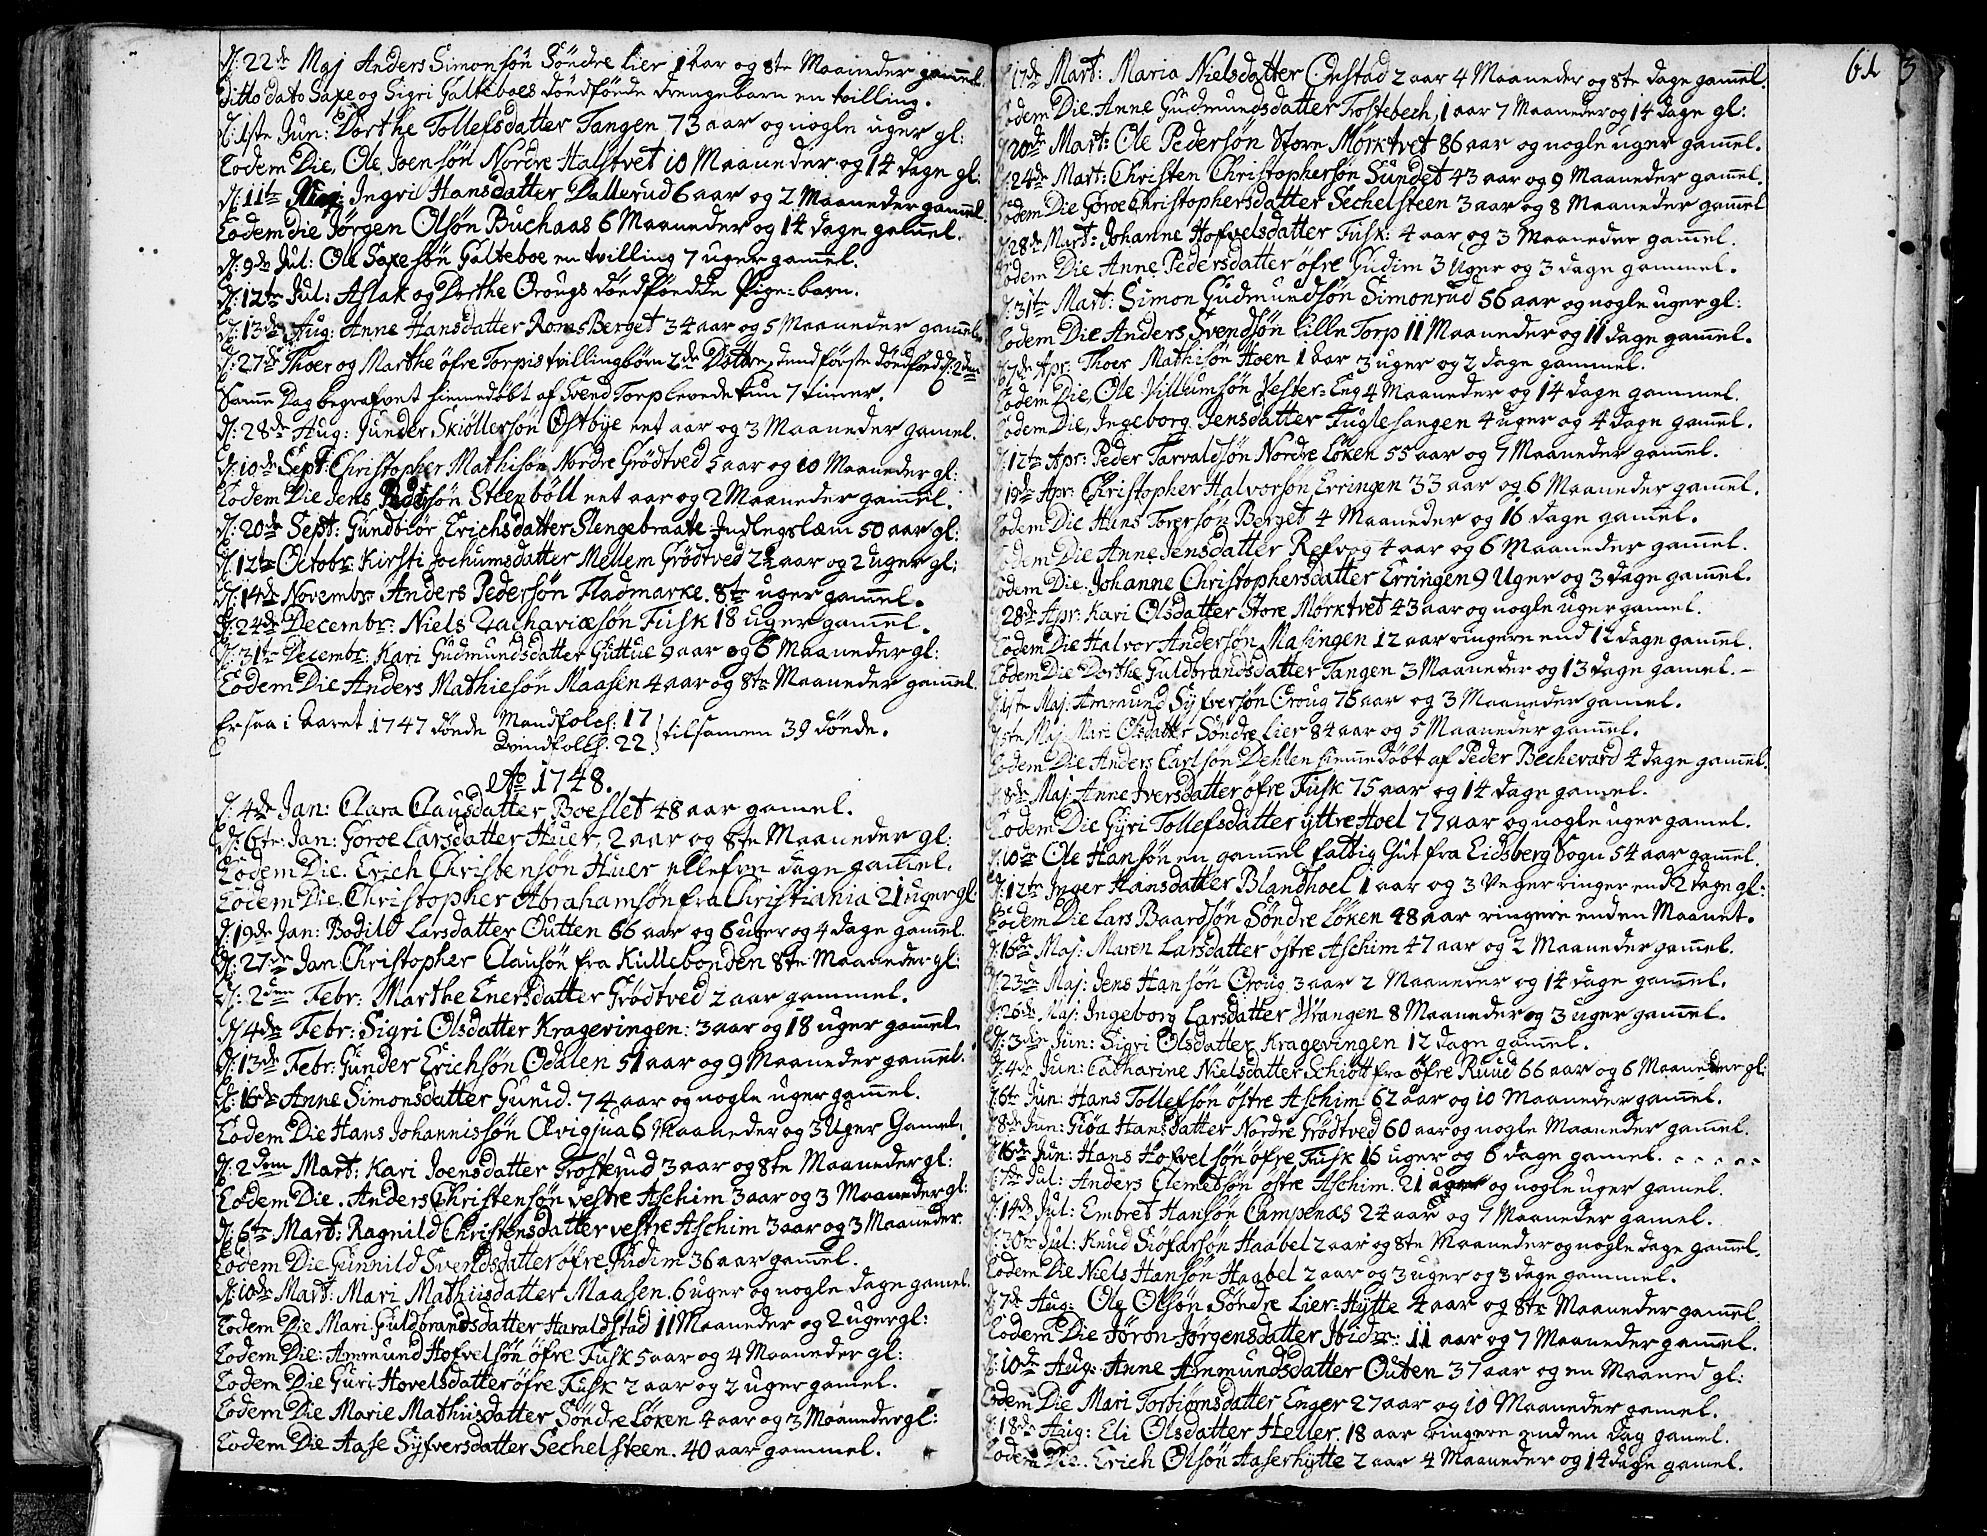 d: 22de Maj Anders Simonsøn Søndre Lier 1 aar og 8te Maaneder gam̄el.
Ditto dato Saxe og Sigri Galteboes dødføde drengebarn en tvilling.
d: 1ste Jun: Dorthe Tollefsdatter Tangen 73 aar og nogle uger gl:
Eodem Die, Ole Joensøn Nordre Halstvet 10 Maaneder og 14 dage gl:
d: 11te Ingri Hansdatter Dallerud 6 aar og 2 Maaneder gam̄el.
Eodem die Jørgen Olsøn Buchaas 6 Maaneder og 14 dage gam̄el.
d: 9de Jul: Ole Saxesøn Galteboe en tvilling 7 uger gam̄el.
d: 12te Jul: Aslak og Dorthe Crougs dødfødde Pige-barn.
d: 13de Aug: Anne Hansdatter Roms Berget 34 aar og 5 Maaneder gam̄el.
d: 27de Thoer og Marthe øfre Torpis tvillingbørn 2de Døttre, dend første dødfød, d: 2den
Sam̄e Dag begravet hiemedøbt af Svend Torp levede kun 7 timer.
d: 28de Aug: Gunder Skiøllersøn Østbye eet aar og 3 Maaneder gam̄el.
d: 10de Sept: Christopher Mathisøn Nordre Grødtved 5 aar og 10 Maaneder gl:
Eodem Die Jens Pedersøn Steenbøll eet aar og 2 Maaneder gam̄el.
d: 20de Sept: Gundbiør Erichsdatter Slengebraate Indlengslæm 50 aar gl:
d: 12te Octobr: Kirsti Jochumsdatter Mellem Grødtved 2½ aar og 2 uger gl:
d: 14de Novembr: Anders Pedersøn Fladmarke. 8te uger gam̄el.
d: 24de Decembr: Niels Zachariæsøn Fusk 18 uger gam̄el.
d: 31te Decembr: Kari Gudmundsdatter Guttue 9 aar og 6 Maaneder gl:
Eodem Die Anders Mathiesøn Maasen 4 aar og 8te Maaneder gam̄el.
Er saa i Aaret 1747 døde Mandfolch: 17
Qvindfolch: 22 } tilsamen 39 døde.
Ao 1748.
d: 4de Jan: Clara Clausdatter Boeslet 48 aar gamel.
d: 6te Jan: Goroe Larsdatter Huer, 2 aar og 8te Maaneder gl:
Eodem Die. Erich Christensøn Huer ellefve dage gam̄el.
Eodem Die. Christopher Abrahamsøn fra Christiania 21 uger gl
d: 19de Jan: Bodild Larsdatter Outten 66 aar og 6 uger og 4 dage gamel.
d: 27de Jan: Christopher Clausøn fra Kullebonden 8te Maaneder gl:
d: 2den Febr: Marthe Enersdatter Grødtved 2 aar gammel.
d: 4de Febr: Sigri Olsdatter Kragevingen: 3 aar og 18 uger gam̄el.
d: 13de Febr: Gunder Erichsøn Odalen 51 aar og 9 Maaneder gam̄el.
d: 16de Anne Simonsdatter Gunid. 74 aar og nogle uger gam̄el.
Eodem Die Hans Johannissøn Qvigjua 6 Maaneder og 3 Uger Gamel.
d: 2dem Mart: Kari Joensdatter Trosterud 3 aar og 8te Maaneder gl:
Eodem Die. Anders Christensøn vestre Aschim 3 aar og 3 Maaneder gl:
d: 6te Mart: Ragnild Christensdatter vestre Aschim 3 aar og 3 Maaneder.
Eodem Die Gunnild Svendsdatter øfre Gudim 36 aar gam̄el.
d: 10de Mart: Mari Mathiisdatter Maasen. 6 uger og nogle dage gamel.
Eodem Die Mari Guldbrandsdatter Haraldstad 11 Maaneder og 2 uger gl:
Eodem Die: Ammund Hofvelsøn øfre Fusk 5 aar og 4 Maaneder gl:
Eodem Die Guri Hovelsdatter øfre Fusk 2 aar og 2 uger gamel.
Eodem Die Marie Mathiisdatter Søndre Løken 4 aar og 3 Maaneder gl:
Eodem Die Aase Syfversdatter Sechelsteen. 40 aar gammel.
3
d: 17de Mart: Maria Nielsdatter Onstad 2 aar 4 Maaneder og 8te dage gam̄el.
Eodem Die Anne Gudmundsdatter Tostebech, 1 aar 7 Maaneder og 14 dage gl:
d: 20de Mart: Ole Pedersøn Store Mørktvet 86 aar og nogle uger gam̄el.
d: 24de Mart: Christen Christophersøn Sundet 43 aar og 9 Maaneder gam̄el.
Eodem Die Goroe Christophersdatter Sechelsteen 3 aar og 8 Maaneder gam̄el
d: 28de Mart: Johanne Hofvelsdatter Fusk: 4 aar og 3 Maaneder gam̄el.
Eodem Die Anne Pedersdatter øfre Gudim 3 Uger og 3 dage gammel.
d: 31te Mart: Simon Gudmundsøn Simonrud 56 aar og nogle uger gl:
Eodem Die Anders Svendsøn lille Torp 11 Maaneder og 11 dage gam̄el.
d: 7de Apr: Thoer Mathisøn Hoen 1 aar 3 uger og 2 dage gammel.
Eodem Die, Ole Villumsøn Vester-Eng 4 Maaneder og 14 dage gammel.
Eodem Die, Ingeborg Jensdatter Fuglesangen 4 uger og 4 dage gam̄el.
d: 12te Apr: Peder Tarvaldsøn Nordre Løken 55 aar og 7 Maaneder gam̄el.
d: 19de Apr: Christopher Halvorsøn Erringen 33 aar og 6 Maaneder gam̄el.
Eodem Die Hans Torersøn Berget 4 Maaneder og 16 dage gamel.
Eodem Die Anne Jensdatter Refvog 4 aar og 6 Maaneder gam̄el.
Eodem Die. Johanne Christophersdatter Erringen 9 Uger og 3 dage gam̄el.
d: 28de Apr: Kari Olsdatter Store Mørktvet 43 aar og nogle uger gamel.
Eodem Die Halvor Andersøn Masingen 12 aar ringere end 12 dage gam̄el.
Eodem Die Dorthe Guldbrandsdatter Tangen 3 Maaneder og 13 dage gamel.
d: 1ste Maj: Ammund Syfversøn Croug 76 aar og 3 Maaneder gamel.
d: 5te Maj: Mari Olsdatter Søndre Lier 84 aar og 5 Maaneder gam̄el.
Eodem Die Anders Carlsøn Dehlen hiemedøbt af Peder Bechevard 4 dage gam̄el.
d: 8de Maj: Anne Iversdatter øfre Fusk 75 aar og 14 dage gamel.
Eodem Die Gyri Tollefsdatter yttre Hoel 77 aar og nogle uger gamel.
d: 10de Ole Hansøn en gam̄el fattig Gut fra Eidsberg Sogn 54 aar gam̄el.
d: 12te Inger Hansdatter Blandhoel 1 aar og 3 Veger ringer end 2 dage gl:
Eodem Die Lars Baardsøn Søndre Løken 48 aar ringere end en Maanet.
d: 16de Maj: Maren Larsdatter østre Aschim 47 aar og 2 Maaneder gam̄el.
d: 23de Maj: Jens Hansøn Croug 3 aar 2 Maaneder og 14 dage gam̄el.
d: 26de Maj: Ingeborg Larsdatter Vrangen 8 Maaneder og 3 uger gam̄el.
d: 3die Jun: Sigri Olsdatter Kragevingen 12 dage gam̄el.
d: 4de Jun: Catharine Nielsdatter Schiøtt fra øfre Ruud 66 aar og 6 Maaneder gl:
d: 6te Jun: Hans Tollefsøn østre Aschim 62 aar og 10 Maaneder gam̄el.
d: 8de Jun: Giøa Hansdatter Nordre Grødtved 60 aar og nogle Maaneder gam̄el.
d: 16de Jun: Hans Hofvelsøn øfre Fusk 16 uger og 6 dage gamel.
d: 7de Jul: Anders Clemetsøn østre Aschim. 21 og nogle uger gamel.
d: 14de Jul: Embret Hansøn Campenæs 24 aar og 7 Maaneder gamel.
d: 30te Jul: Knud Siofarsøn Haabel 2 aar og 8te Maaneder og nogle dage gam̄el.
Eodem Die Niels Hansøn Haabel 2 aar og 3 uger og 3 dage gammel.
d: 7de Aug: Ole Olsøn Søndre Lier-Hytte 4 aar og 8te Maaneder gam̄el.
Eodem Die Jøron Jørgensdatter Ibidem: 11 aar og 7 Maaneder gam̄el.
d: 10de Aug: Anne Ammundsdatter Outen 37 aar og en Maaned gl:
Eodem Die Mari Torbiørnsdatter Enger 27 aar og 10 Maaneder gamel.
d: 18de Aug: Eli Olsdatter Heller. 18 aar ringere end en Dag gamel.
Eodem Die. Erich Olsøn Aaserhytte 2 aar 4 Maaneder og 14 dage gamel.